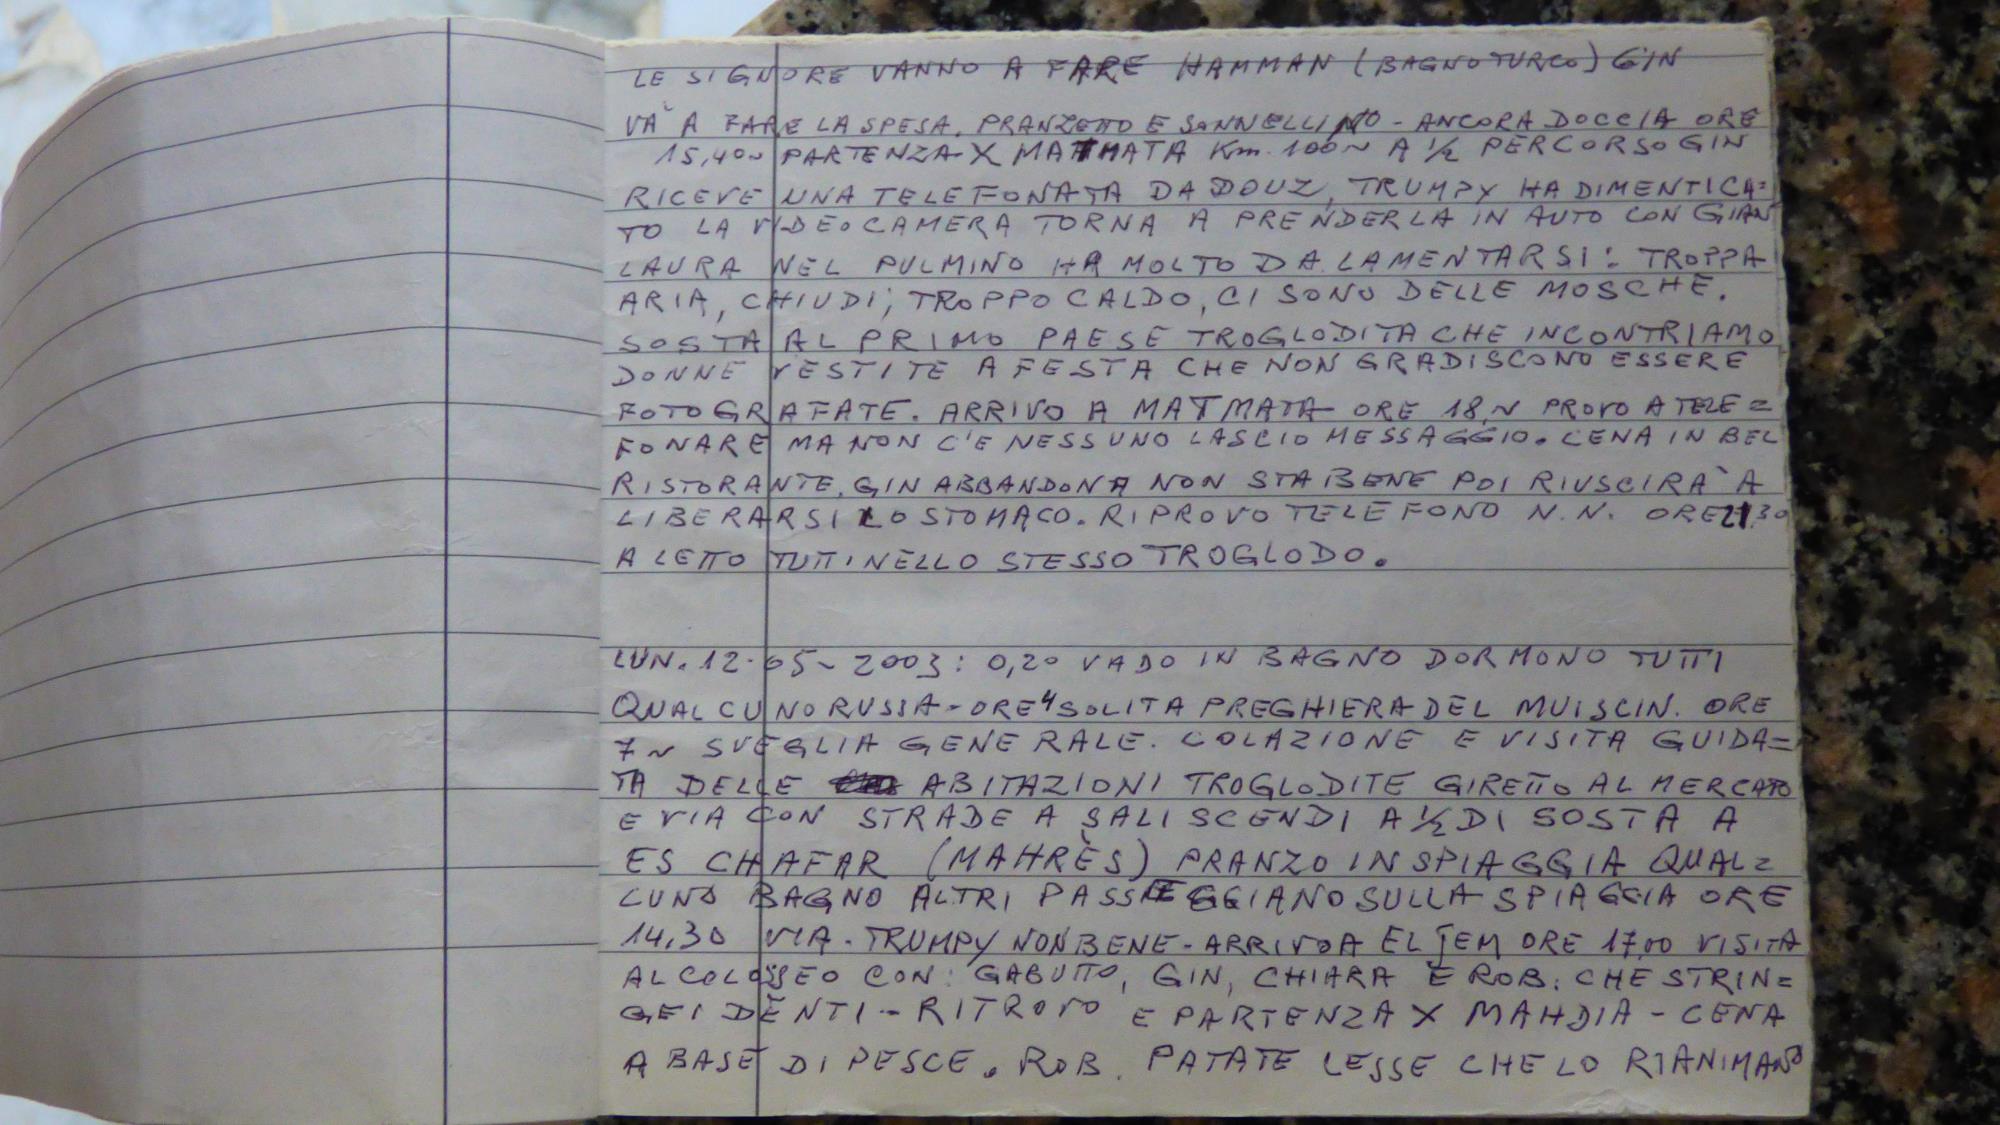 LE SIGNORE VANNO A FARE HAMMAN (BAGNO TURCO) GIN
VÀ A FARE LA SPESA. PRANZETTO E SONNELLINO - ANCORA DOCCIA ORE
15,40~ PARTENZA X MATMATA Km. 100~ A ½ PERCORSO GIN
RICEVE UNA TELEFONATA DA DOUZ, TRUMPY HA DIMENTICA=
TO LA VIDEOCAMERA TORNA A PRENDERLA IN AUTO CON GIAN
LAURA NEL PULMINO HA MOLTO DA LAMENTARSI: TROPPA
ARIA, CHIUDI, TROPPO CALDO, CI SONO DELLE MOSCHE.
SOSTA AL PRIMO PAESE TROGLODITA CHE INCONTRIAMO
DONNE VESTITE A FESTA CHE NON GRADISCONO ESSERE
FOTOGRAFATE. ARRIVO A MATMATA ORE 18~ PROVO A TELE=
FONARE MA NON C'E NESSUNO LASCIO MESSAGGIO. CENA IN BEL
RISTORANTE, GIN ABBANDONA NON STA BENE POI RIUSCIRÀ A
LIBERARSI LO STOMACO. RIPROVO TELEFONO N.N. ORE 21,30
A LETTO TUTTI NELLO STESSO TROGLODO.
LUN. 12-05~2003: 0,20 VADO IN BAGNO DORMONO TUTTI
QUALCUNO RUSSA - ORE 4 SOLITA PREGHIERA DEL MUISCIN. ORE
7~ SVEGLIA GENERALE. COLAZIONE E VISITA GUIDA=
TA DELLE ABITAZIONI TROGLODITE GIRETTO AL MERCATO
E VIA CON STRADE A SALISCENDI A ½ DI SOSTA A
ES CHAFAR (MAHRÈS) PRANZO IN SPIAGGIA QUAL=
CUNO BAGNO ALTRI PASSEGGIANO SULLA SPIAGGIA ORE
14,30 VIA - TRUMPY NON BENE - ARRIVO A EL JEM ORE 17,00 VISITA
AL COLOSSEO CON: GABUTTO, GIN, CHIARA E ROB. CHE STRIN=
GE I DENTI - RITROVO E PARTENZA X MAHDIA - CENA
A BASE DI PESCE. ROB. PATATE LESSE CHE LO RIANIMANO